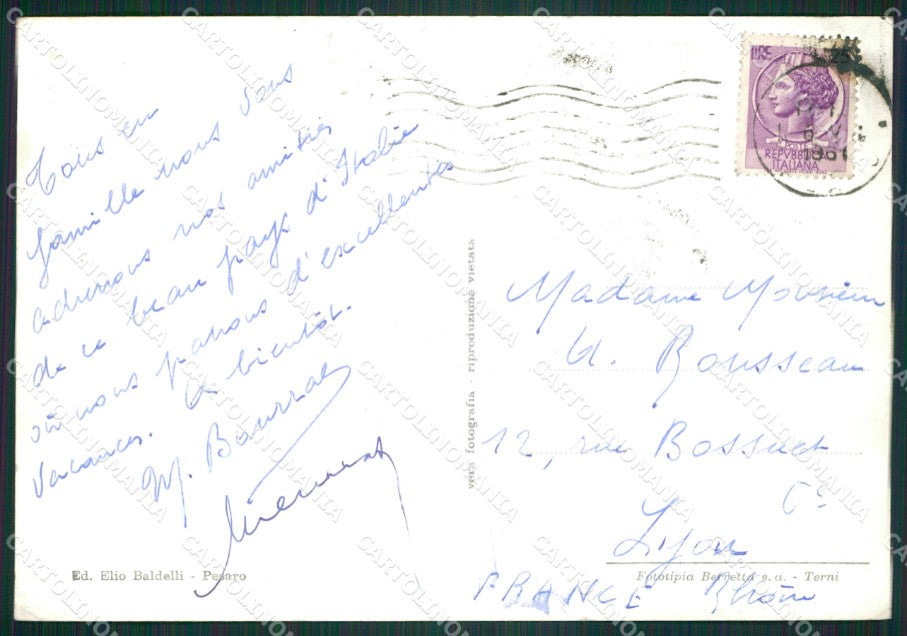 Tous en
famille nous vous
adressons nos amitiés
de ce beau pays d'Italie
où nous passons d'excellentes
vacances. A bientôt.
M.
vera fotografia - riproduzione vietata
LIRE 25
POSTE
REPVBBLICA
ITALIANA
1961
Madame Monsieur
Rousseau
12, rue Bossuet
Lyon 6e
FRANCE Rhône
Ed. Elio Baldelli - Pesaro
Fototipia Berretta s.a. - Terni
CARTOLINOMANIA